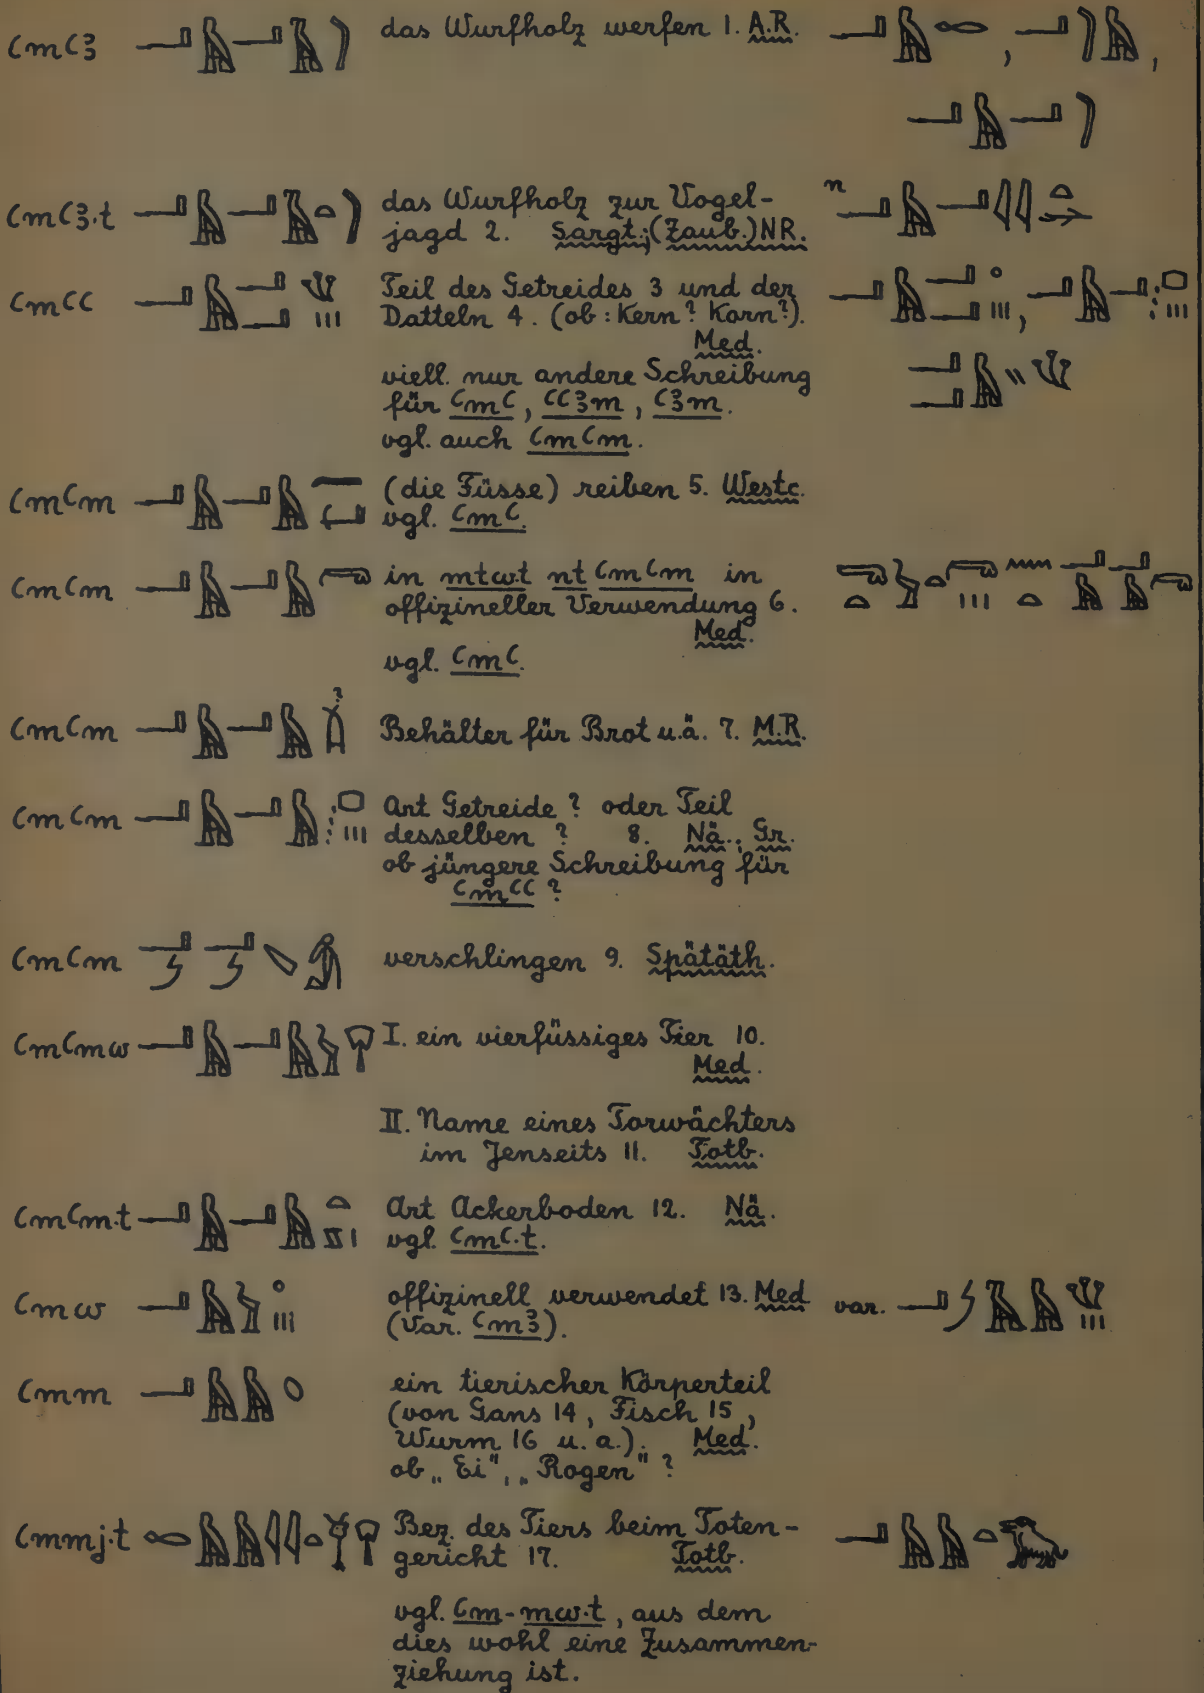 ꜥmꜥꜣ das Wurfholz werfen 1. A.R.
ꜥmꜥꜣ.t das Wurfholz zur Vogel- n
jagd 2. Sargt.; (Zaub.) NR.
ꜥmꜥꜥ Teil des Getreides 3 und der
Datteln 4. (ob: Kern? Korn?).
Med.
viell. nur andere Schreibung
für ꜥmꜥ, ꜥꜥꜣm, ꜥꜣm.
vgl. auch ꜥmꜥm.
ꜥmꜥm (die Füsse) reiben 5. Westc.
vgl. ꜥmꜥ.
ꜥmꜥm in mtwt nt ꜥmꜥm in
offizineller Verwendung 6.
Med.
vgl. ꜥmꜥ.
ꜥmꜥm ? Behälter für Brot u.ä. 7. M.R.
ꜥmꜥm Art Getreide? oder Teil
desselben? 8. Nä., Gr.
ob jüngere Schreibung für
ꜥmꜥꜥ?
ꜥmꜥm verschlingen 9. Spätäth.
ꜥmꜥmw I. ein vierfüssiges Tier 10.
Med.
II. Name eines Torwächters
im Jenseits 11. Totb.
ꜥmꜥm.t Art Ackerboden 12. Nä.
vgl. ꜥmꜥ.t.
ꜥmw offizinell verwendet 13. Med var.
(Var. ꜥmꜣ).
ꜥmm ein tierischer Körperteil
(von Gans 14, Fisch 15,
Wurm 16 u. a.). Med.
ob „Ei", „Rogen"?
ꜥmmj.t Bez. des Tiers beim Toten-
gericht 17. Totb.
vgl. ꜥm-mw.t, aus dem
dies wohl eine Zusammen-
ziehung ist.